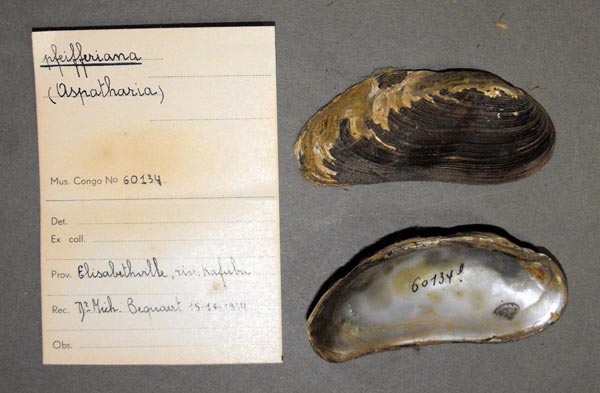 pfeifferiana
(Aspatharia)
Mus. Congo No 60134
Det.
Ex coll.
Prov. Elisabethville, riv. Kafubu
Rec. Dr Mich. Bequaert
Obs.
60134